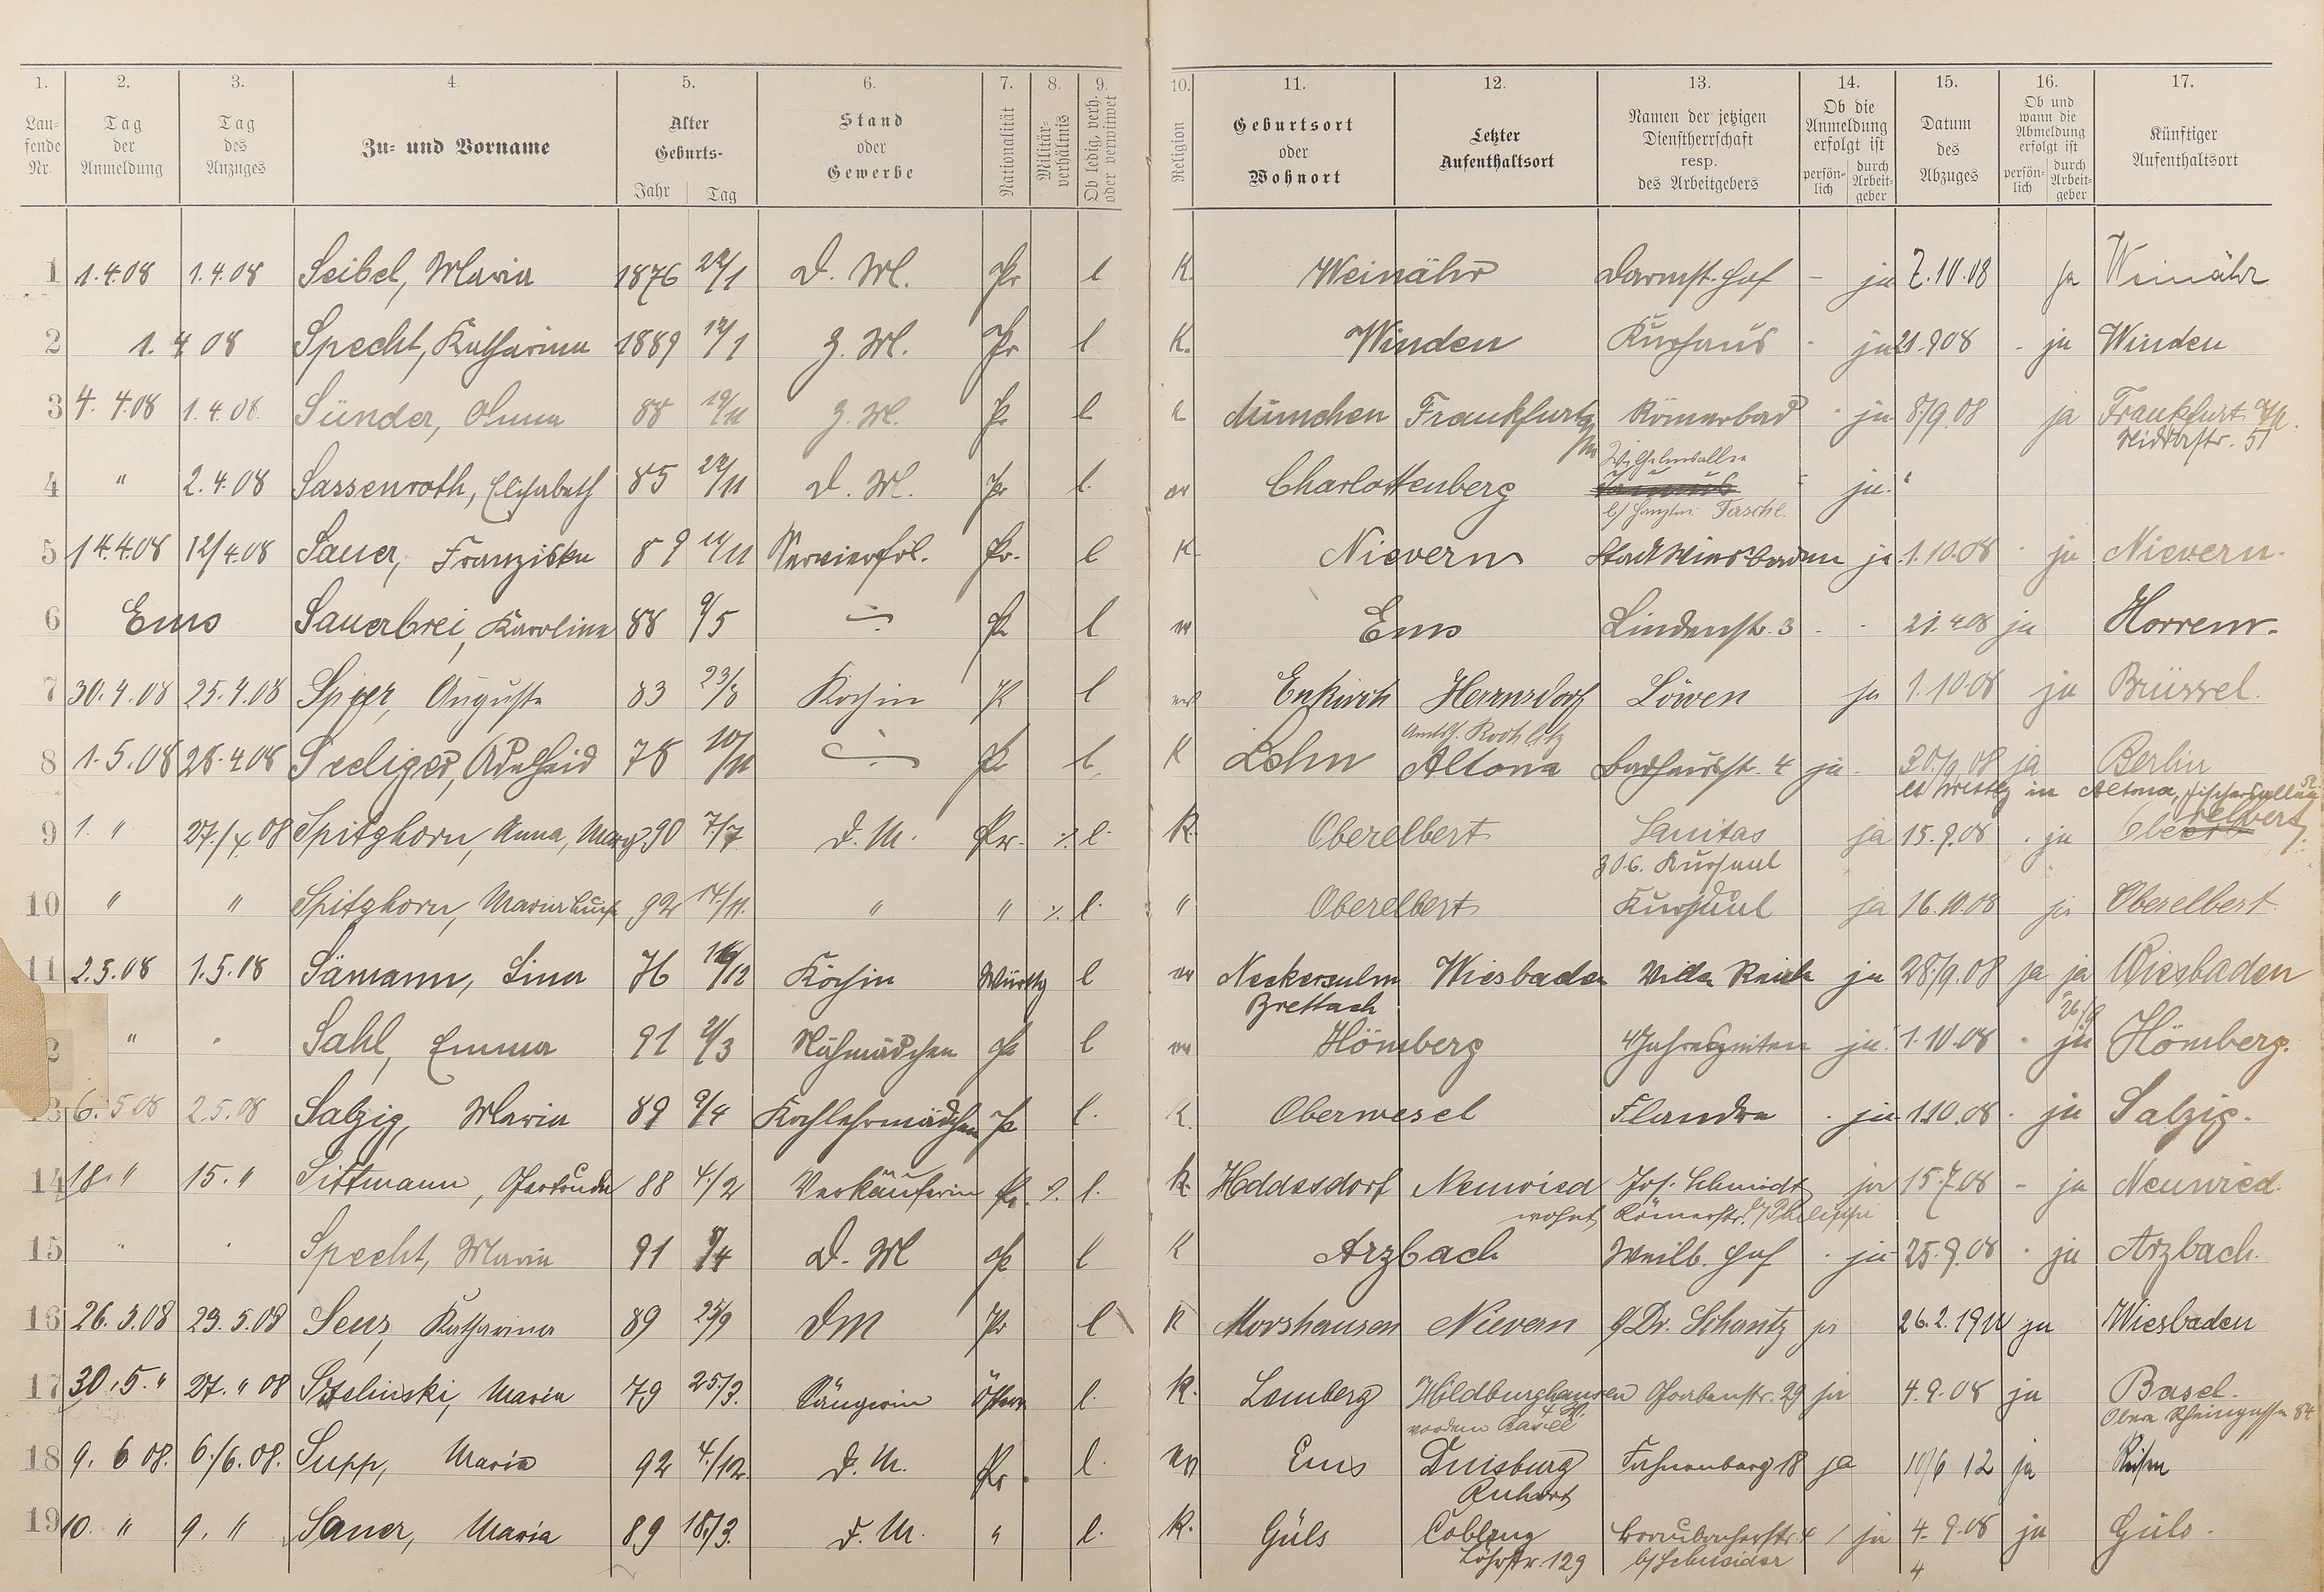 1. 2. 3. 4. 5. 6. 7. 8. 9. 10. 11. 12. 13. 14. 15. 16. 17.
Lau-
fende
Nr.
Tag
der
Anmeldung
Tag
des
Anzuges
Zu- und Vorname
Alter
Geburts-
Jahr Tag
Stand
oder
Gewerbe
Nationalität
Militär-
verhältnis
Ob ledig, verh.
oder verwitwet
Religion
Geburtsort
oder
Wohnort
Letzter
Aufenthaltsort
Namen der jetzigen
Dienstherrschaft
resp.
des Arbeitgebers
Ob die
Anmeldung
erfolgt ist
persön-
lich
durch
Arbeit-
geber
Datum
des
Abzuges
Ob und
wann die
Abmeldung
erfolgt ist
persön-
lich
durch
Arbeit-
geber
Künftiger
Aufenthaltsort
1 1.4.08 1.4.08 Seibel, Maria 1876 22/1 D. M. Pr l K. Weinähr Darmst. Hof - ja 7.10.08 ja Weinähr
2 1.4 08 Specht, Katharina 1889 12/1 Z. M. Pr l K. Winden Kurhaus - ja 21.9 08 - ja Winden
3 4. 4.08 1.4.08. Sünder, Anna 88 19/11 Z. M. Pr l K München Frankfurt a/M Römerbad - ja 8/9 08 ja Frankfurt a/M.
4 " 2.4.08 Sassenroth, Elisabeth 85 22/11 D. M. Pr l. ev Charlottenberg Wilhelmsallee
ja.
5 14.4.08 12/4.08 Sauer, Franziska 89 11/11 Servierfrl. Pr. l K Nievern Stadt Wiesbaden ja 1.10.08 - ja Nievern.
6 Ems Sauerbrei, Karoline 88 9/5 Pr l ev Ems Lindenstr. 3 - - 21.4 08 ja Horrem.
7 30.4.08 25.4.08 Spier, Auguste 83 23/8 Köchin Pr l ev Enkirch Herrnsdorf Löwen ja 1.10 08 ja Brüssel.
Amtsh. Rochlitz
8 1.5.08 28.4 08 Seeliger, Adelheid 78 10/11 Pr l. K Lehn Altona Badhausstr. 4 ja. 30./9 08 ja Berlin
in Altona,
9 1. " 27./4 08 Spitzhorn, Anna, Marg 90 7./7 D. M. Pr. % l. K. Oberelbert Sanitas ja 15.9.08 . ja Oberelbert.
30.6. Kursaal
10 " " Spitzhorn, Maria 92 14./11. " " % l. " Oberelbert Kursaal ja 16.10.08 ja Oberelbert.
11 2.5.08 1.5.08 Sämann, Lina 76 16/12 Köchin Württbg l ev Neckarsulm Wiesbaden Villa Reich ja 28./9.08 ja ja Wiesbaden
Brettach
" " Sahl, Emma 91 21/3 Nähmädchen Pr l ev Hömberg 4 Jahreszeiten ja. 1.10.08 - 26/9 ja Hömberg.
13 6. 5 08 2.5.08 Salzig, Maria 89 9/4 Kochlehrmädchen Pr l. K. Oberwesel Flandre . ja 1.10.08 . ja Salzig.
14 18. " 15. " Sittmann, Gertrude 88 4./2 Verkäuferin Pr. % l. K. Heddesdorf Neuwied Jos. Schmidt ja 15.7.08 - ja Neuwied.
wohnt Römerstr. b/ Philippi
15 " " Specht, Maria 91 9/4 D. M Pr l K Arzbach Weilb. Hof . ja 25.9.08 . ja Arzbach.
16 26.5.08 23.5.08 Sens, Katharina 89 25/9 DM Pr l K Morshausen Nievern Dr. Schantz ja 26.2.1911 ja Wiesbaden
17 30.5. " 27. " 08 Stelinski, Maria 79 25./3. Sängerin Österr l. K. Lemberg Hildburghausen Grabenstr. 29 ja 4.9.08 ja Basel.
vordem Basel
Obere Rheingasse 84
18 9. 6 08. 6./6.08. Supp, Maria 92 4./12. D. M. Pr. l. ev Ems Duisburg Fahnenberg 18 ja 10/6 12 ja
Ruhrort
19 10. " 9. " Sauer, Maria 89 18./3. D. M. " l. K. Güls Coblenz Braubacherstr. 4 / ja 4.9.08 ja Güls.
Löhrstr. 129 b/ Schneider 4